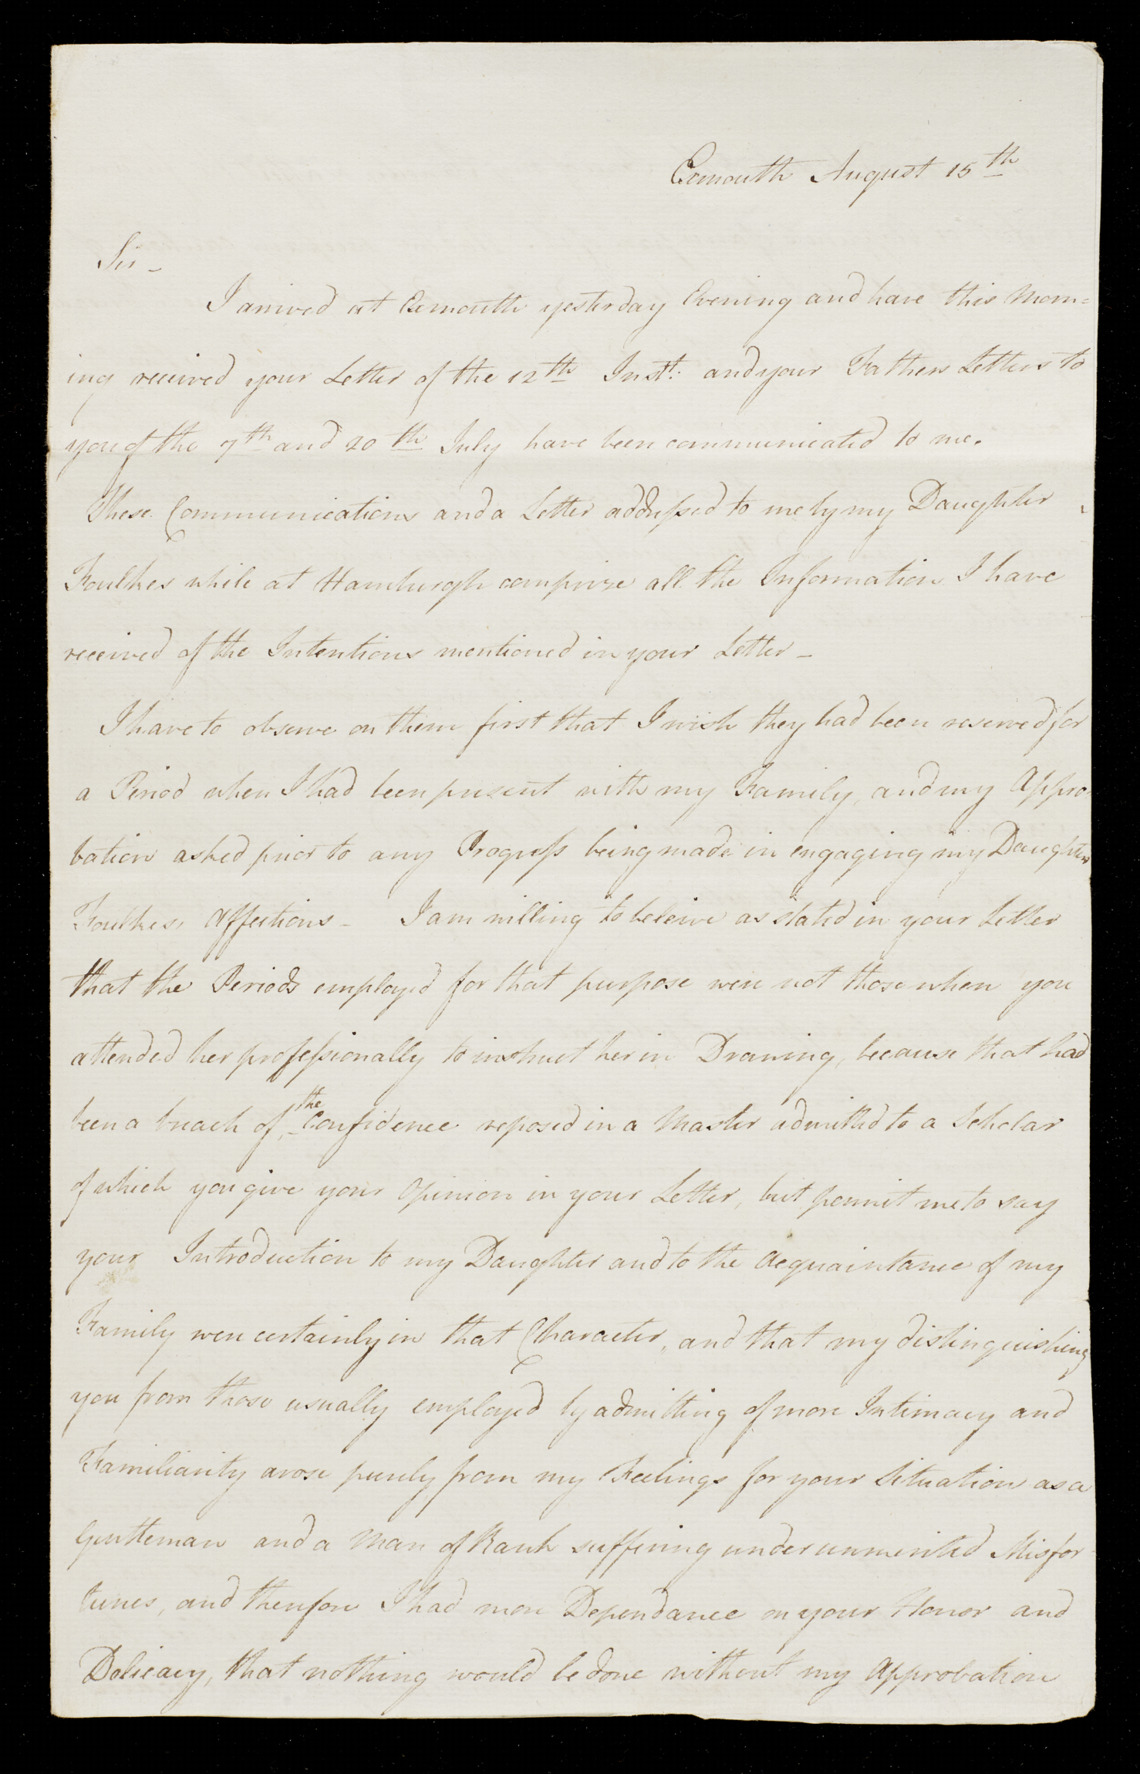 Exmouth August 15th
Sir -
I arived at Exmouth yesterday Evening and have this Morn=
ing received your Letter of the 12th Inst: and your Fathers Letters to
you of the 7th and 20th July have been communicated to me.
These Communications and a Letter addressed to me by my Daughter
Foulkes while at Hamburgh comprize all the Information I have
received of the Intentions mentioned in your Letter -
I have to observe on them first that I wish they had been reserved for
a Period when I had been present with my Family, and my Appro
bation asked prior to any Progress being made in engaging my Daughter
Foulkes, Affections - I am willing to beleive as stated in your Letter
that the Periods employed for that purpose were not those when you
attended her professionally to instruct her in Drawing, because that had
been a breach of the Confidence reposed in a Master admitted to a Scholar
of which you give your Opinion in your Letter, but permit me to say
your Introduction to my Daughter and to the Acquaintance of my
Family were certainly in that Character, and that my distinguishing
you from those usually employed by admitting of more Intimacy and
Familiarity arose purely from my Feelings for your Situation as a
Gentleman and a Man of Rank suffering under unmerited Misfor
tunes, and therefore I had more Dependance on your Honor and
Delicacy, that nothing would be done without my Approbation